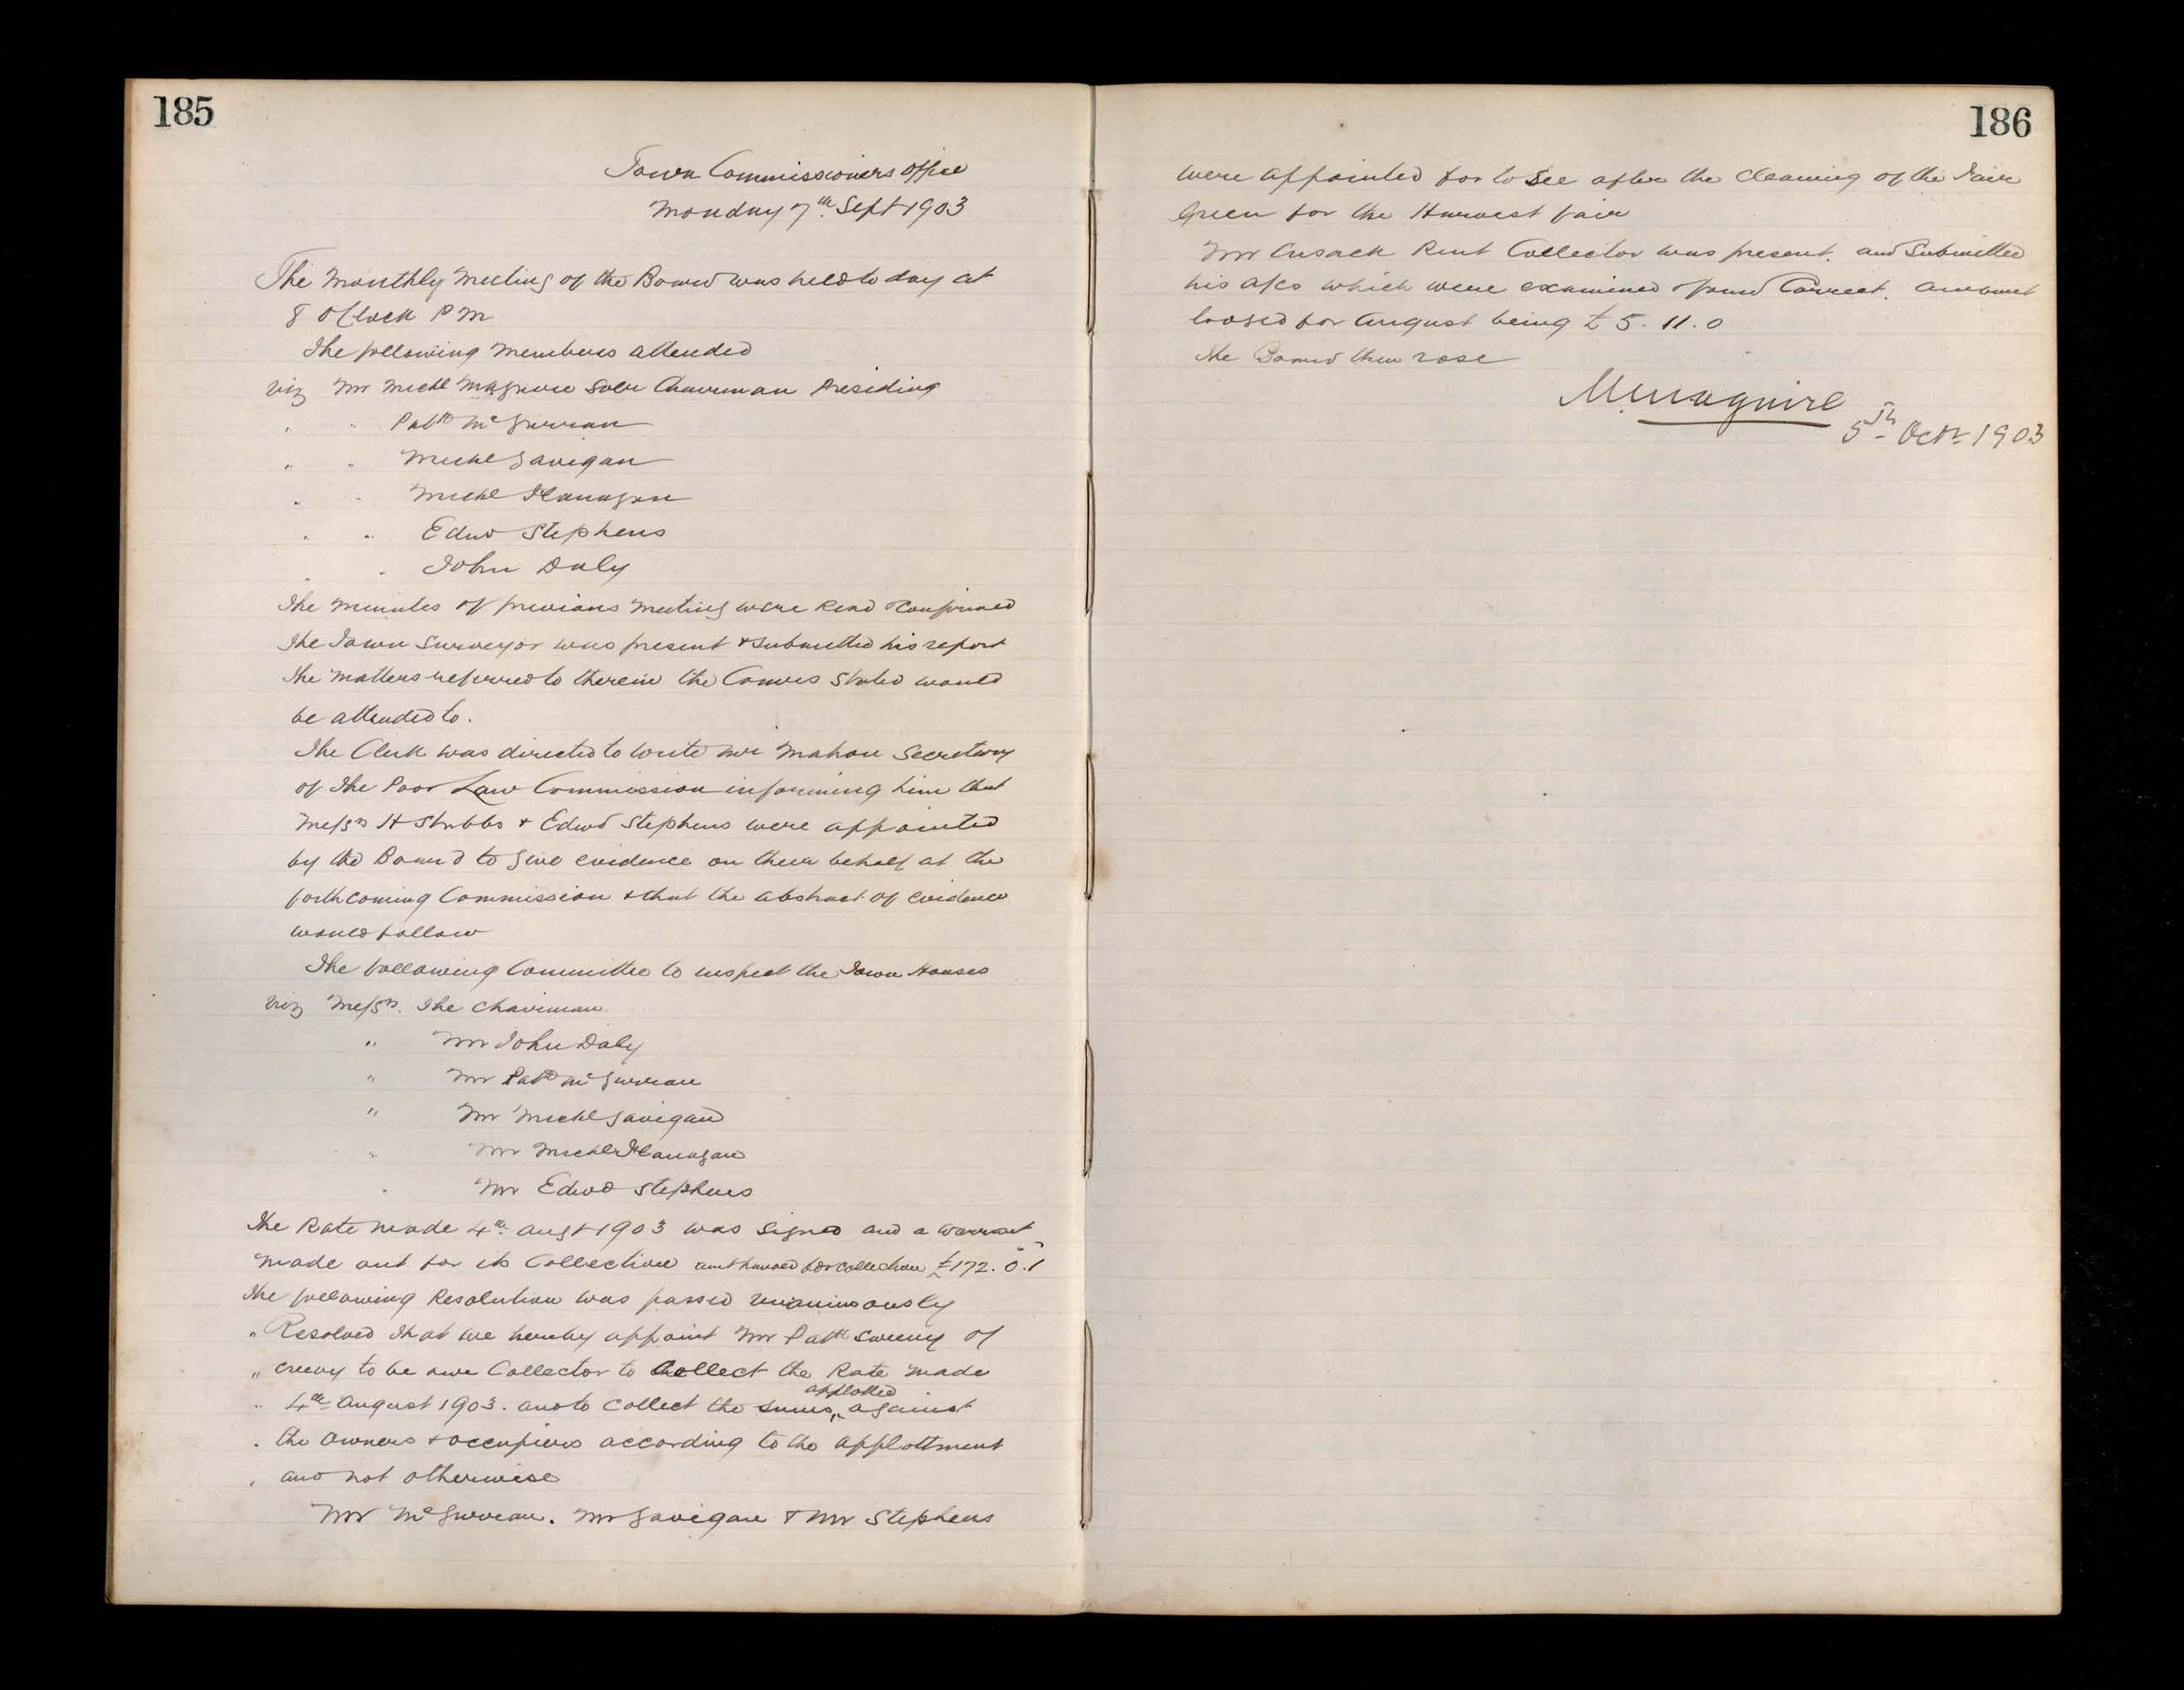 185
Town Commissioners Office
Monday 7th Sept 1903
The Monthly Meeting of the Board was held to day at
8 O Clock P M
The following Members attended
viz Mr Michl Maguire Solr Chairman Presiding
" " Patk McGurran
" " Michl Gavigan
" " Michl Flanagan
" " Edwd Stephens
" " John Daly
The Minutes of previous Meeting were Read & Confirmed
The Town Surveyor was present & submitted his report
the matters referred to therein the Comrs stated would
be attended to.
The Clerk was directed to write Mr Mahon Secretary
of the Poor Law Commission informing him that
Messrs H Stubbs & Edwd Stephens were appointed
by the Board to give evidence on their behalf at the
forthcoming Commission & that the abstract of evidence
would follow
The following Committee to inspect the Town Houses
viz Messrs. The Chairman
" Mr John Daly
" Mr Patk McGurran
" Mr Michl Gavigan
" Mr Michl Flanagan
" Mr Edwd Stephens
The Rate made 4th Augt 1903 was signed and a Warrant
made out for its Collection amt handed for collection £172.0.1
The following Resolution was passed unanimously
" Resolved that we hereby appoint Mr Patk Sweeny of
" Creevy to be our Collector to Collect the Rate made
" 4th August 1903. and to Collect the sums applotted against
" the Owners & occupiers according to the applottment
" and not otherwise
Mr McGurran. Mr Gavigan & Mr Stephens
186
were appointed for to see after the Cleaning of the Fair
Green for the Harvest fair
Mr Cusack Rent Collector was present. and Submitted
his a/cs which were examined & found Correct. Amount
lodged for August being £5.11.0
The Board then rose
M Maguire
5th Octr 1903